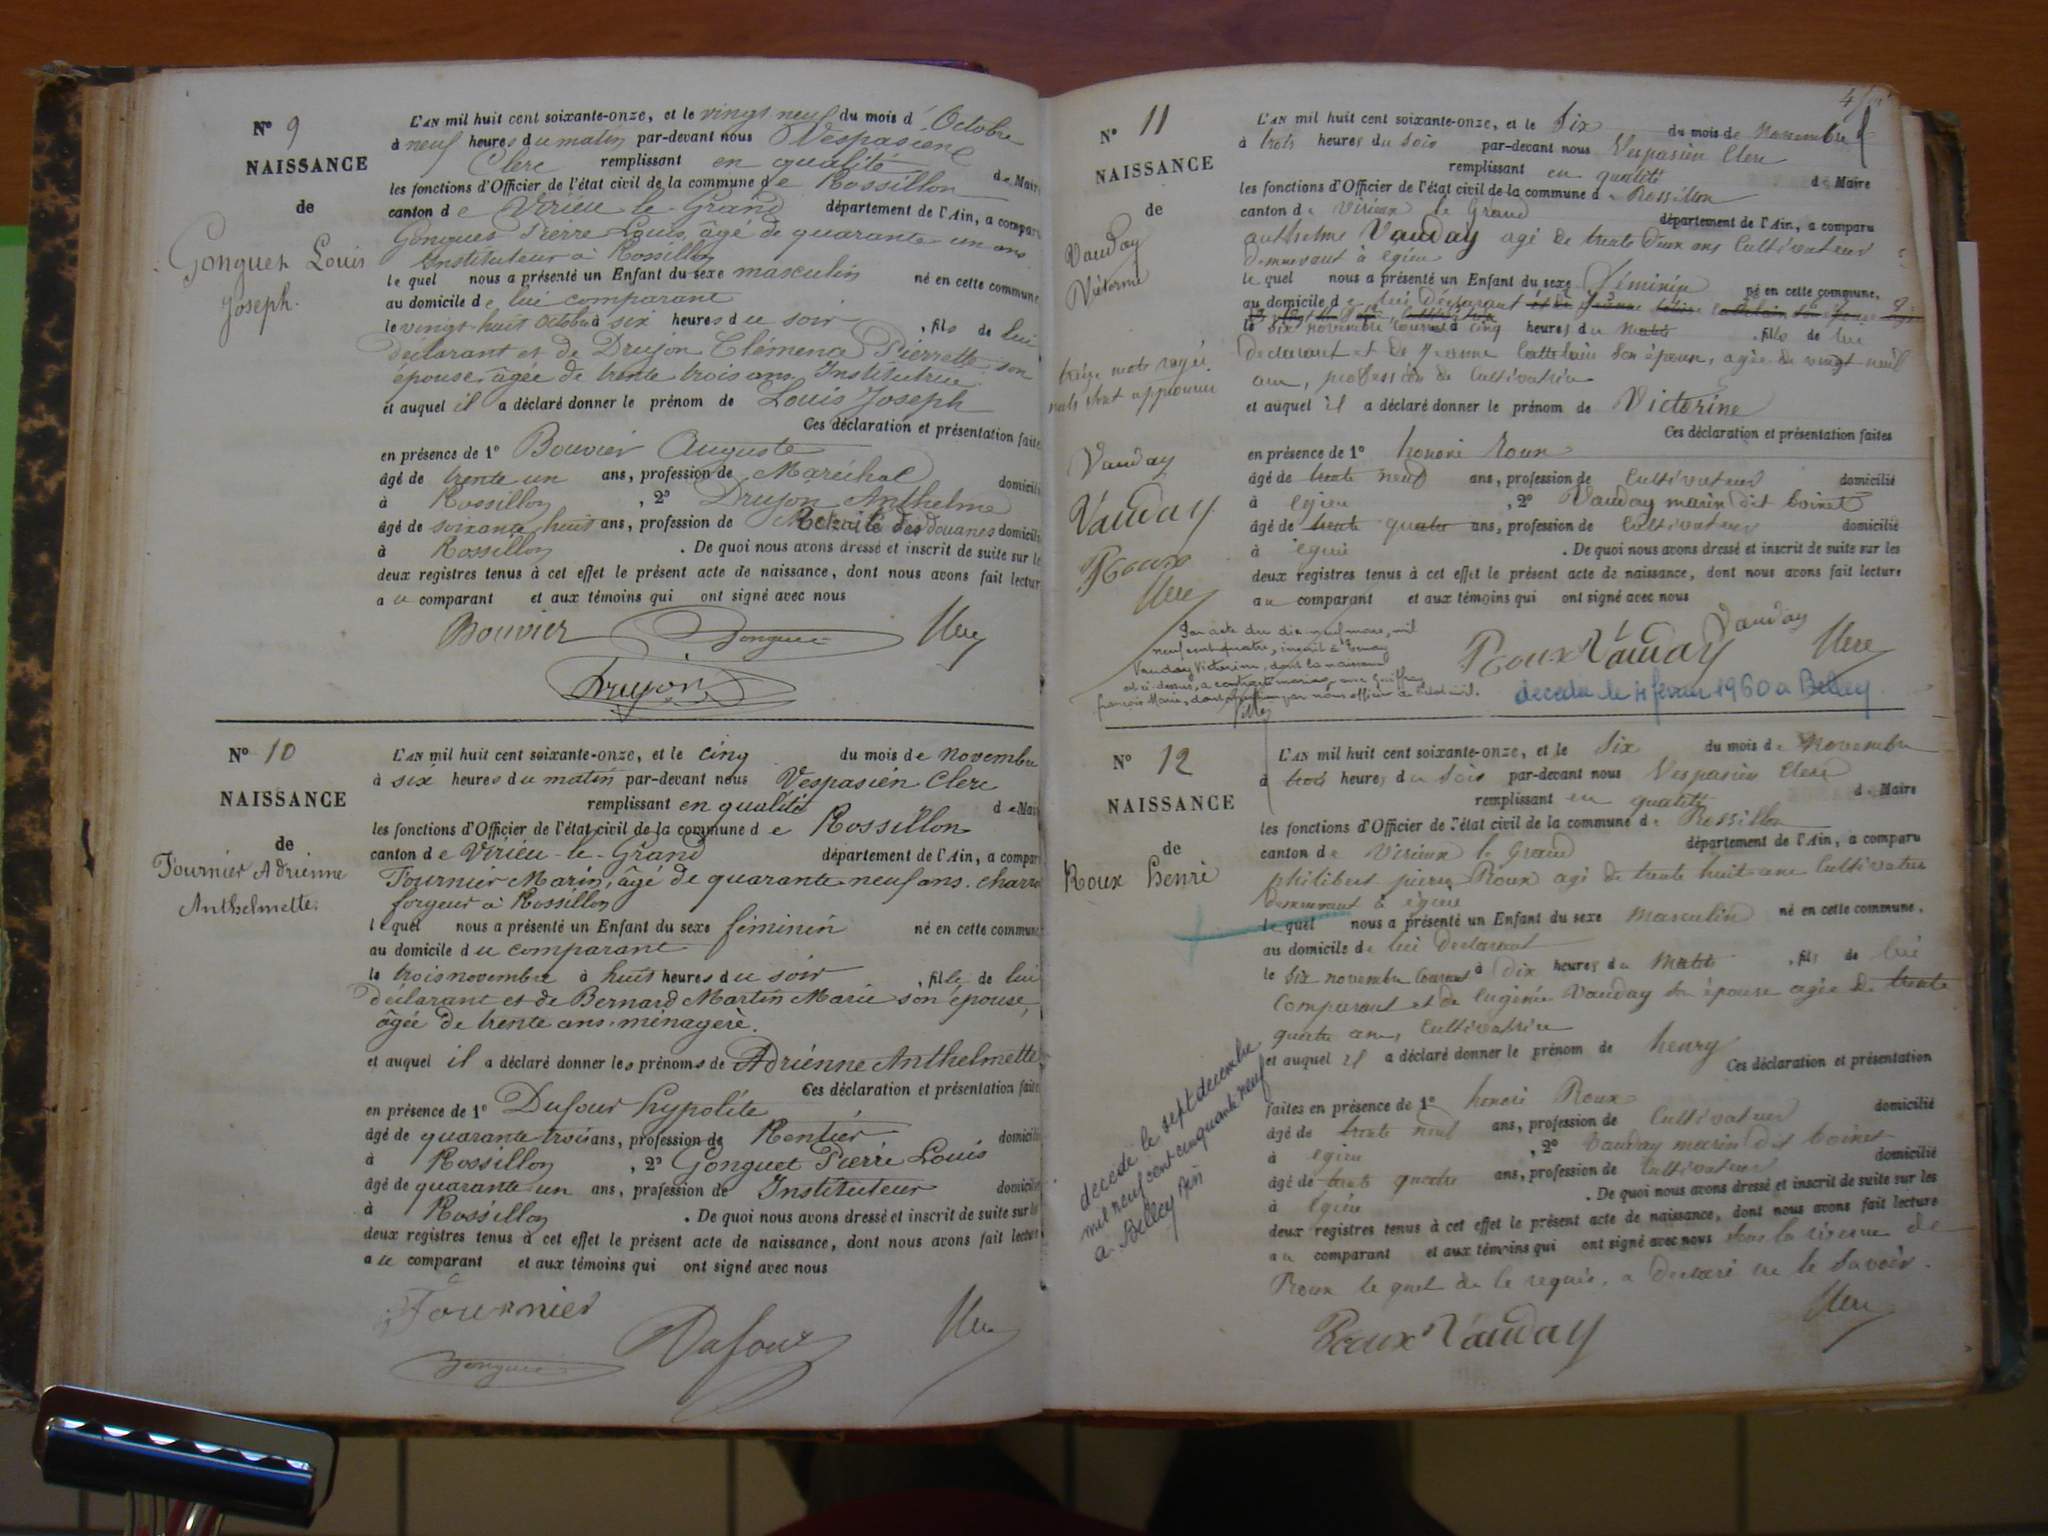 N° 9
NAISSANCE
de
Gonguet Louis
Joseph.
L'AN mil huit cent soixante-onze, et le vingt neuf du mois d' Octobre
à neuf heures du matin par-devant nous Vespasien
Clerc remplissant en qualité de Maire
les fonctions d'Officier de l'état civil de la commune de Rossillon
canton de Virieu-le-Grand département de l'Ain, a comparu
Gonguet Pierre Louis, âgé de quarante un ans
Instituteur à Rossillon
lequel nous a présenté un Enfant du sexe masculin né en cette commune
au domicile de lui comparant
le vingt-huit Octobre à six heures du soir, fils de lui
déclarant et de Drujon Clémence Pierrette son
épouse, âgée de trente trois ans, Institutrice
et auquel il a déclaré donner le prénom de Louis Joseph
Ces déclaration et présentation faites
en présence de 1° Bouvier Auguste
âgé de trente un ans, profession de Maréchal domicilié
à Rossillon, 2° Drujon Anthelme
âgé de soixante huit ans, profession de Retraité des douanes domicilié
à Rossillon. De quoi nous avons dressé et inscrit de suite sur les
deux registres tenus à cet effet le présent acte de naissance, dont nous avons fait lecture
au comparant et aux témoins qui ont signé avec nous
Bouvier Gonguet Clerc
Drujon
N° 10
NAISSANCE
de
Fournier Adrienne
Anthelmette.
L'AN mil huit cent soixante-onze, et le cinq du mois de novembre
à six heures du matin par-devant nous Vespasien Clerc
remplissant en qualité de Maire
les fonctions d'Officier de l'état civil de la commune de Rossillon
canton de Virieu-le-Grand département de l'Ain, a comparu
Fournier Marin, âgé de quarante-neuf ans. charron
forgeur à Rossillon
lequel nous a présenté un Enfant du sexe féminin né en cette commune
au domicile du comparant
le trois novembre à huit heures du soir, fille de lui
déclarant et de Bernard Martin Marie son épouse,
âgée de trente ans, ménagère.
et auquel il a déclaré donner les prénoms de Adrienne Anthelmette
Ces déclaration et présentation faites
en présence de 1° Dufour hypolite
âgé de quarante trois ans, profession de Rentier domicilié
à Rossillon, 2° Gonguet Pierre Louis
âgé de quarante-un ans, profession de Instituteur domicilié
à Rossillon. De quoi nous avons dressé et inscrit de suite sur les
deux registres tenus à cet effet le présent acte de naissance, dont nous avons fait lecture
au comparant et aux témoins qui ont signé avec nous
Fournier Dufour Clerc
Gonguet
N° 11
NAISSANCE
de
Vauday
Victorine
L'AN mil huit cent soixante-onze, et le Six du mois de novembre
à trois heures du soir par-devant nous Vespasien Clerc
remplissant en qualité de Maire
les fonctions d'Officier de l'état civil de la commune de Rossillon
canton de Virieux le Grand département de l'Ain, a comparu
anthelme Vauday agé de trente deux ans Cultivateur
demeurant à égieu
lequel nous a présenté un Enfant du sexe féminin né en cette commune,
au domicile de lui déclarant
le Six novembre courant à cinq heures du matin, fille de lui
declarant et de jeanne Cattelain son épouse, agée de vingt neuf
ans, profession de Cultivatrice
et auquel il a déclaré donner le prénom de Victorine
Ces déclaration et présentation faites
treize mots rayés
nuls sont approuvés
Vauday
Vauday
Roux
Clerc
en présence de 1° honoré Roux
âgé de trente neuf ans, profession de Cultivateur domicilié
à égieu, 2° Vauday marin dit boinet
âgé de trente quatre ans, profession de Cultivateur domicilié
à égieu. De quoi nous avons dressé et inscrit de suite sur les
deux registres tenus à cet effet le présent acte de naissance, dont nous avons fait lecture
au comparant et aux témoins qui ont signé avec nous
Vauday
Roux Vauday Clerc
Par acte du dix-neuf mars, mil
neuf cent quatre, inscrit à
Vauday Victorine, dont la naissance
est ci-dessus, a contracté mariage avec
François Marie, par nous officier de l'état civil.
décédée le 11 février 1960 à Belley
N° 12
NAISSANCE
de
Roux henri
L'AN mil huit cent soixante-onze, et le Six du mois de novembre
à trois heures du soir par-devant nous Vespasien Clerc
remplissant en qualité de Maire
les fonctions d'Officier de l'état civil de la commune de Rossillon
canton de Virieux le Grand département de l'Ain, a comparu
philibert pierre Roux agé de trente huit ans Cultivateur
demeurant à égieu
lequel nous a présenté un Enfant du sexe masculin né en cette commune,
au domicile de lui declarant
le Six novembre courant à dix heures du matin, fils de lui
comparant et de eugénie Vauday son épouse agée de trente
quatre ans, Cultivatrice
et auquel il a déclaré donner le prénom de henry
Ces déclaration et présentation
faites en présence de 1° honoré Roux
âgé de trente neuf ans, profession de Cultivateur domicilié
à égieu, 2° Vauday marin dit boinet
âgé de trente quatre ans, profession de Cultivateur domicilié
à égieu. De quoi nous avons dressé et inscrit de suite sur les
deux registres tenus à cet effet le présent acte de naissance, dont nous avons fait lecture
au comparant et aux témoins qui ont signé avec nous sous la réserve de
Roux le quel de le requis, a declaré ne le savoir.
Roux Vauday Clerc
décédé le sept décembre
mil neuf cent cinquante neuf
à Belley Ain